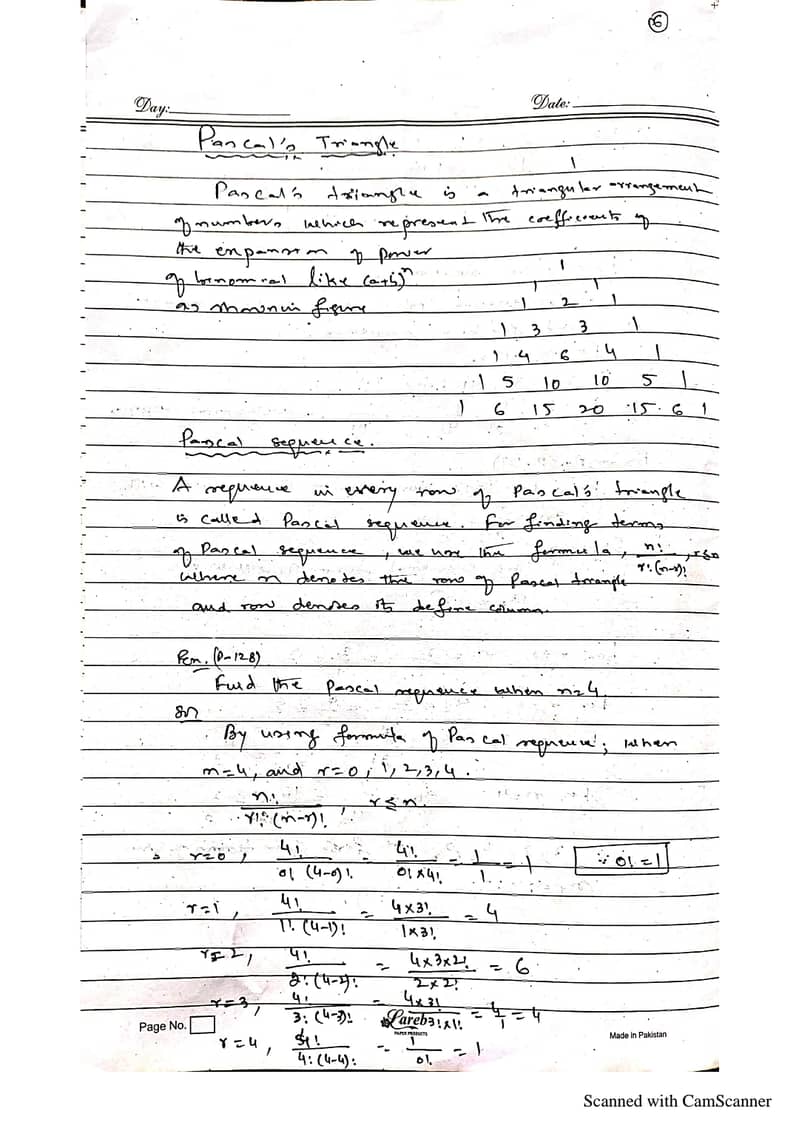 6
Day:
Date:
Pascal's Triangle
1
Pascal's triangle is a triangular arrangement
of numbers which represent the coefficients of
the expansion of power
of binomial like (a+b)^n
as shown in figure
1
1 1
1 2 1
1 3 3 1
1 4 6 4 1
1 5 10 10 5 1
1 6 15 20 15 6 1
Pascal sequence.
A sequence in every row of Pascal's triangle
is called Pascal sequence. For finding terms
of Pascal sequence, we use the formula, n!/r!(n-r)!, r≤n
where n denotes the row of Pascal triangle
and row denotes its define column.
(P-128)
Find the Pascal sequence when n=4.
Sol
By using formula of Pascal sequence; when
n=4, and r=0, 1, 2, 3, 4.
n!/r!(n-r)!, r≤n.
r=0, 4!/0!(4-0)! = 4!/0!×4! = 1/1 = 1 ∵ 0!=1
r=1, 4!/1!(4-1)! = 4×3!/1×3! = 4
r=2, 4!/2!(4-2)! = 4×3×2!/2×2! = 6
r=3, 4!/3!(4-3)! = 4×3!/3!×1! = 4/1 = 4
r=4, 4!/4!(4-4)! = 1/0! = 1
Page No.
Pareb
PAPER PRODUCTS
Made in Pakistan
Scanned with CamScanner